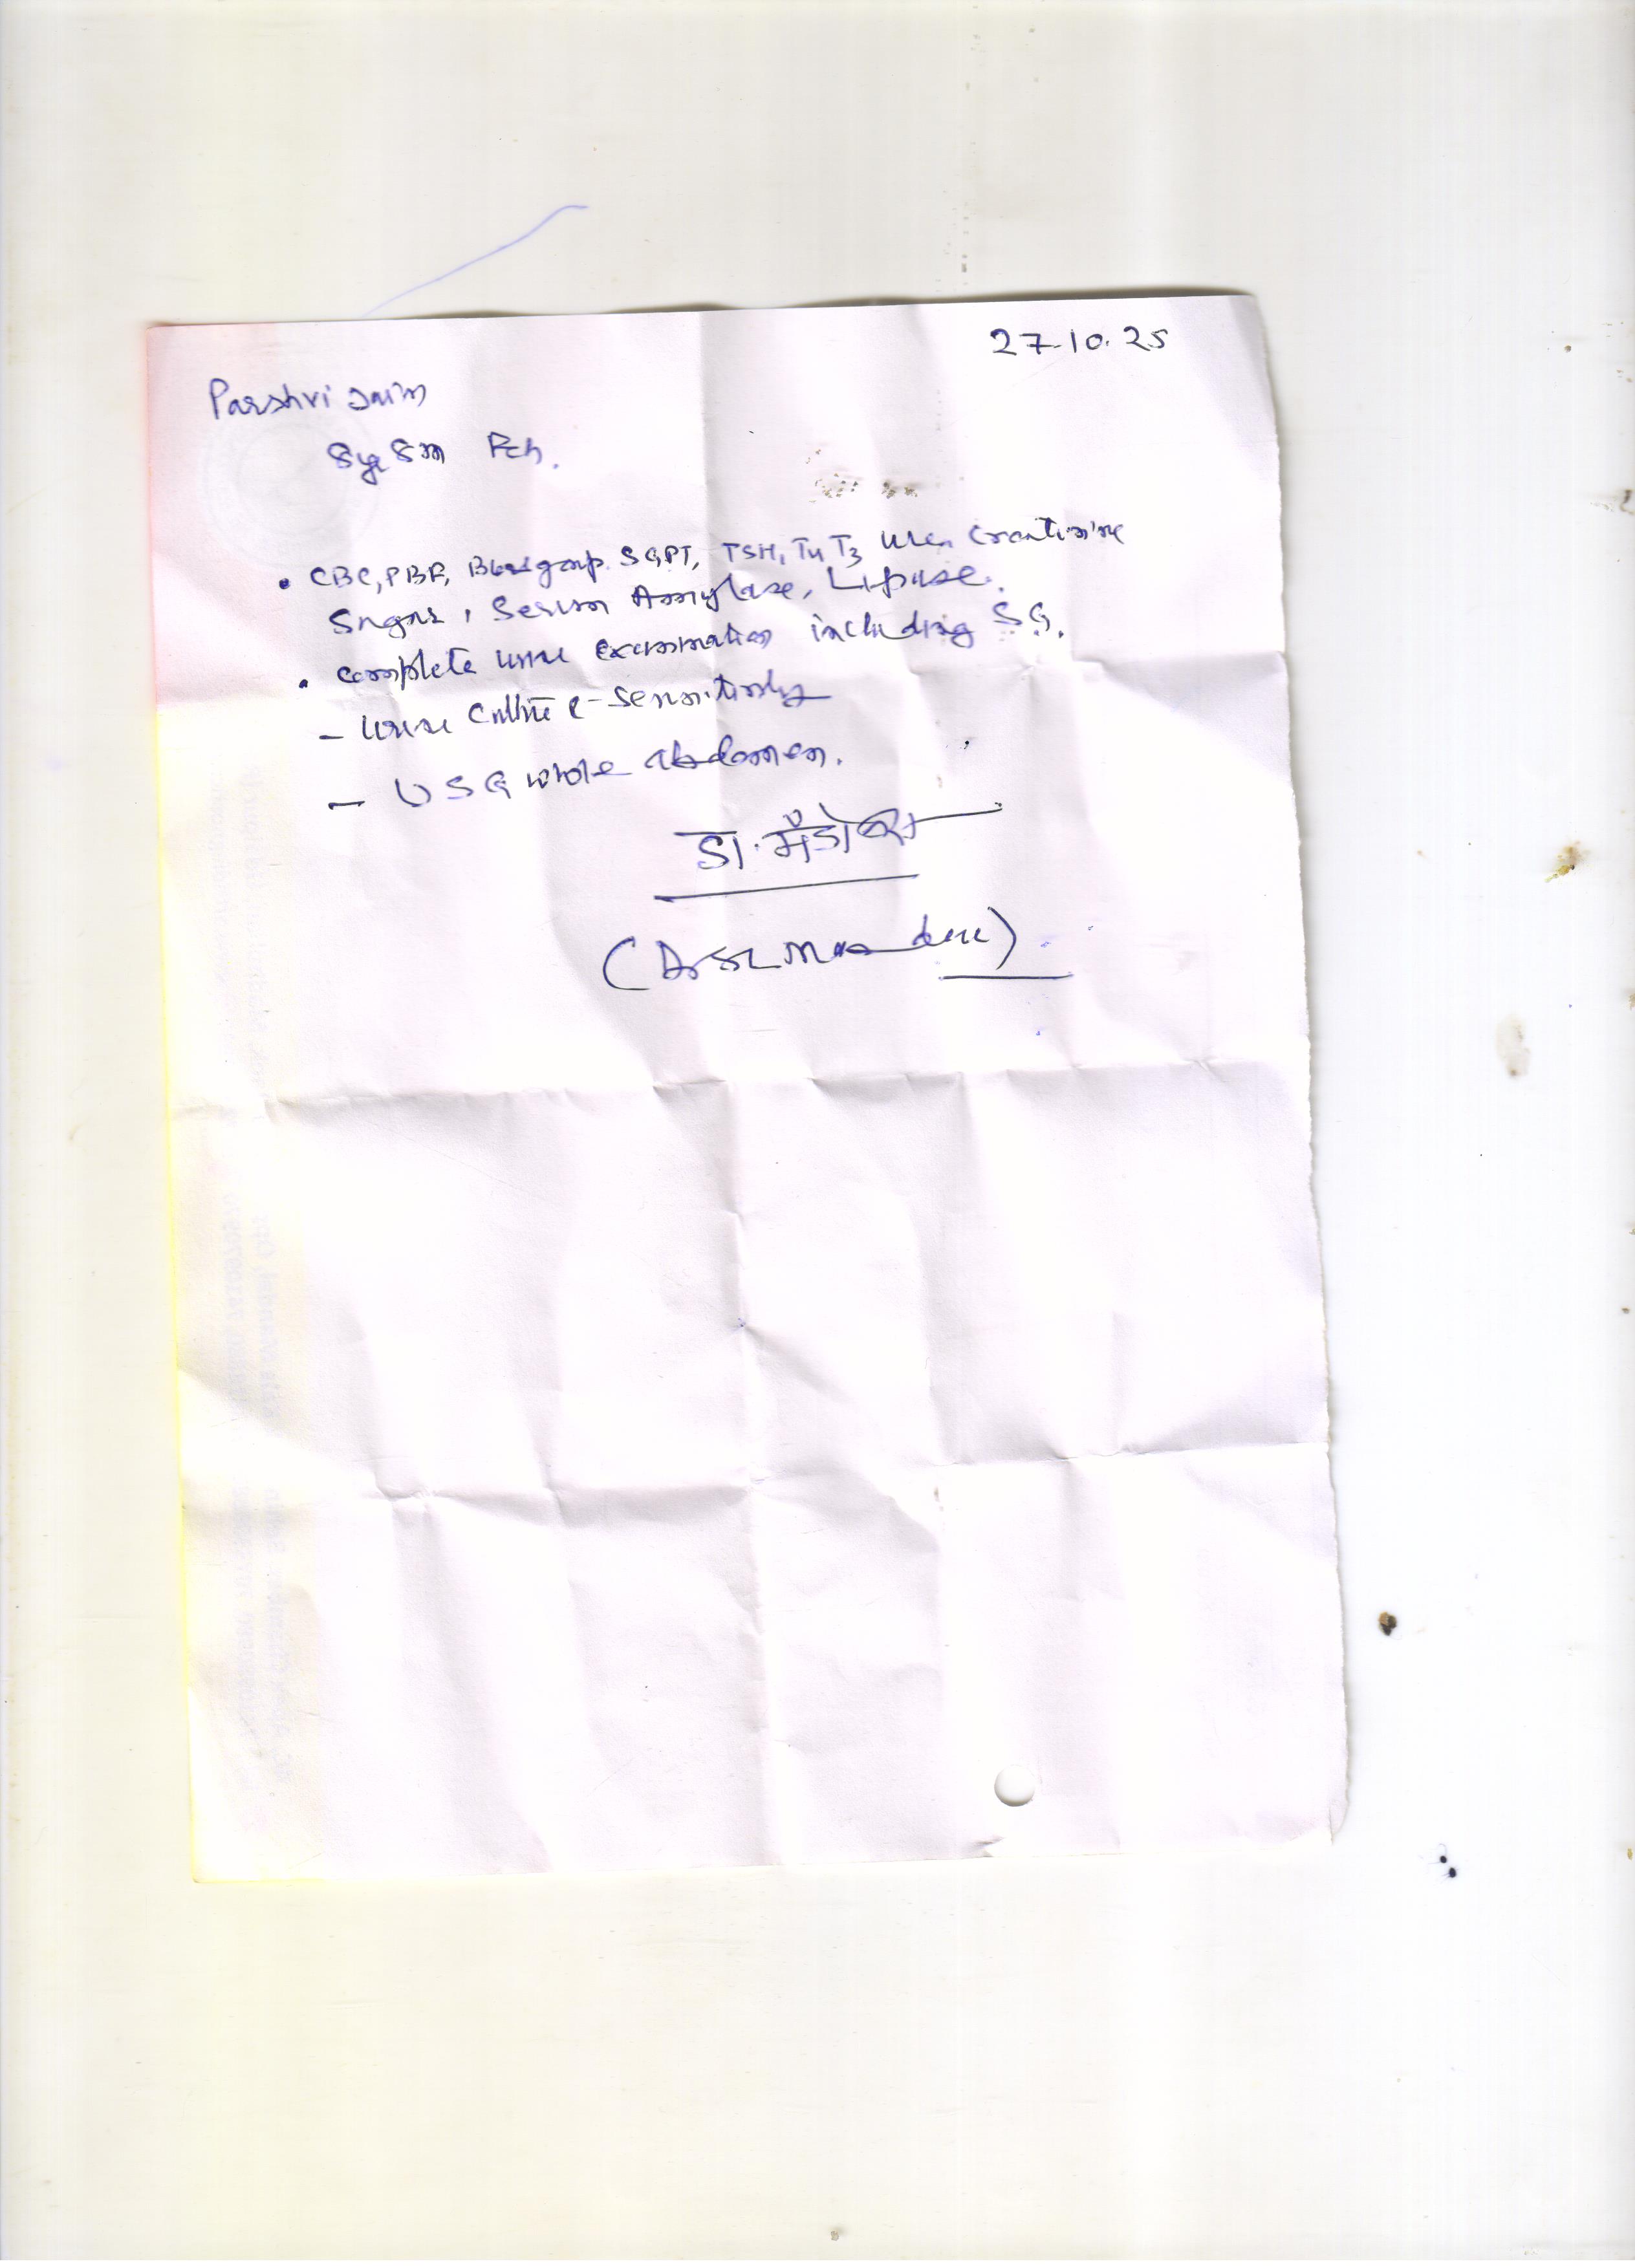 27.10.25
Parshvi Jain
8yr 8m Fch.
• CBC, PBF, Blood group. SGPT, TSH, T4 T3 Urea Creatinine
Sugar, Serum Amylase, Lipase.
• complete urine examination including SG.
- Urine Culture c- sensitivity
- USG whole abdomen.
डा.
(Dr